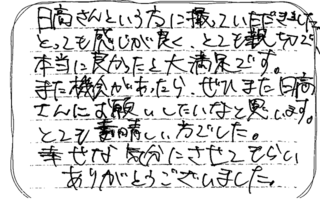 日高さんという方に撮っていただきました。
とっても感じが良く、とても親切で
本当に良かったと大満足です。
また機会があったら、ぜひまた日高
さんにお願いしたいなと思います。
とても素晴しい方でした。
幸せな気分にさせてもらい
ありがとうございました。